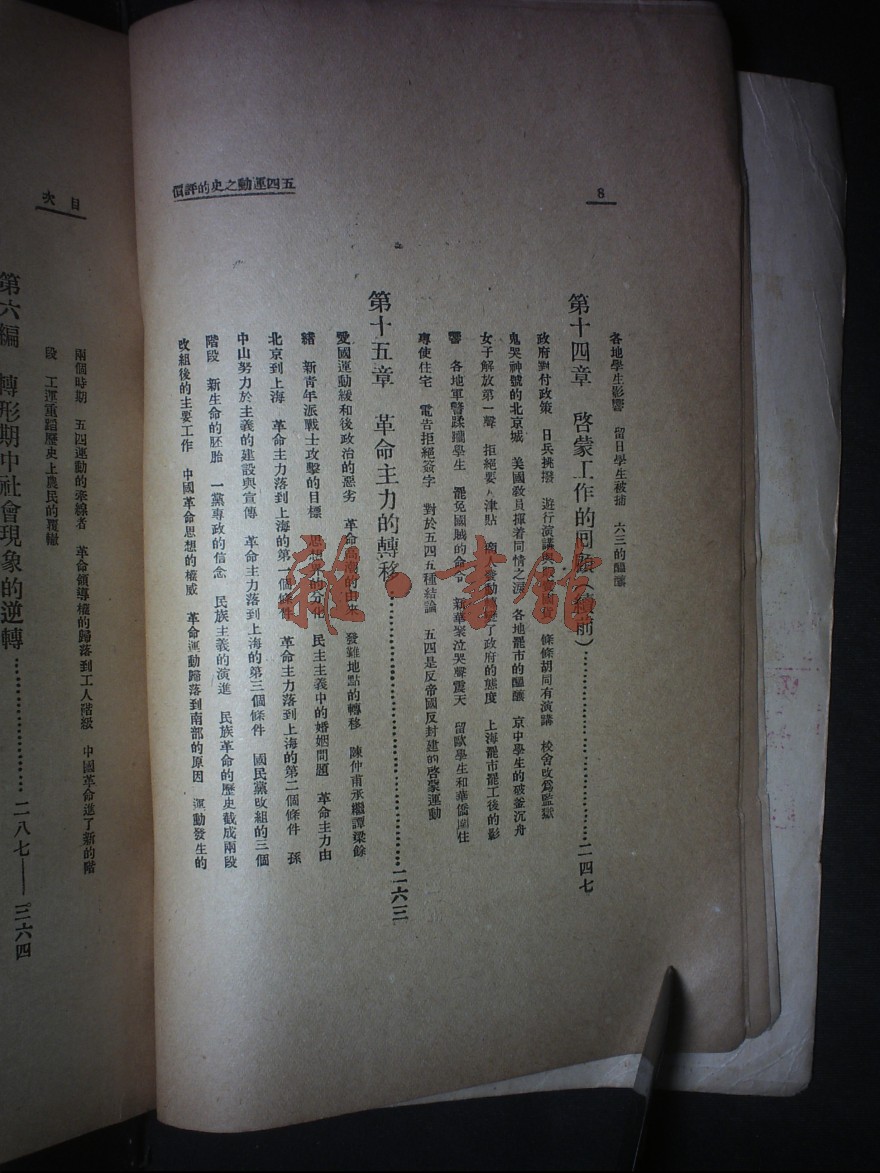 8
五四運動之史的評價
各地學生影響　留日學生被捕　六三的醞釀
第十四章　啓蒙工作的回顧（續前）…………二四七
政府對付政策　日兵挑撥　遊行演講與　條條胡同有演講　校舍改爲監獄
鬼哭神號的北京城　美國敎員揮着同情之淚　各地罷市的醞釀　京中學生的破釜沉舟
女子解放第一聲　拒絕要人津貼　了政府的態度　上海罷市罷工後的影
響　各地軍警蹂躪學生　罷免國賊的命令　新華泣哭聲震天　留歐學生和華僑圍住
專使住宅　電告拒絕簽字　對於五四五種結論　五四是反帝國反封建的啓蒙運動
第十五章　革命主力的轉移…………二六三
愛國運動緩和後政治的惡劣　革命高潮的由來　發難地點的轉移　陳仲甫承繼譚梁餘
緒　新青年派戰士攻擊的目標　思想界的分化　民主主義中的婚姻問題　革命主力由
北京到上海　革命主力落到上海的第一個條件　革命主力落到上海的第二個條件　孫
中山努力於主義的建設與宣傳　革命主力落到上海的第三個條件　國民黨改組的三個
階段　新生命的胚胎　一黨專政的信念　民族主義的演進　民族革命的歷史截成兩段
改組後的主要工作　中國革命思想的權威　革命運動歸落到南部的原因　運動發生的
目次
兩個時期　五四運動的牽線者　革命領導權的歸落到工人階級　中國革命進了新的階
段　工運重蹈歷史上農民的覆轍
第六編　轉形期中社會現象的逆轉…………二八七——三六四
雜·書館